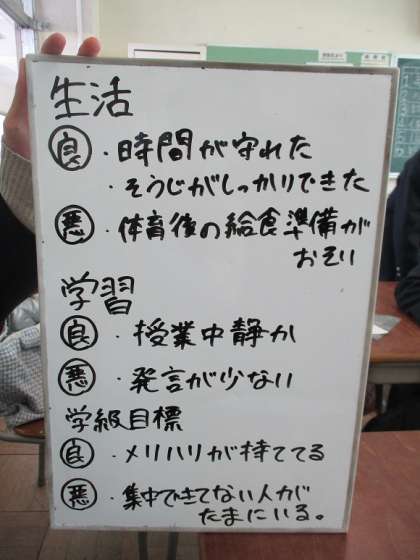 生活
良 ・時間が守れた
・そうじがしっかりできた
悪 ・体育後の給食準備が
おそい
学習
良 ・授業中静か
悪 ・発言が少ない
学級目標
良 ・メリハリが持ててる
悪 ・集中できてない人が
たまにいる。